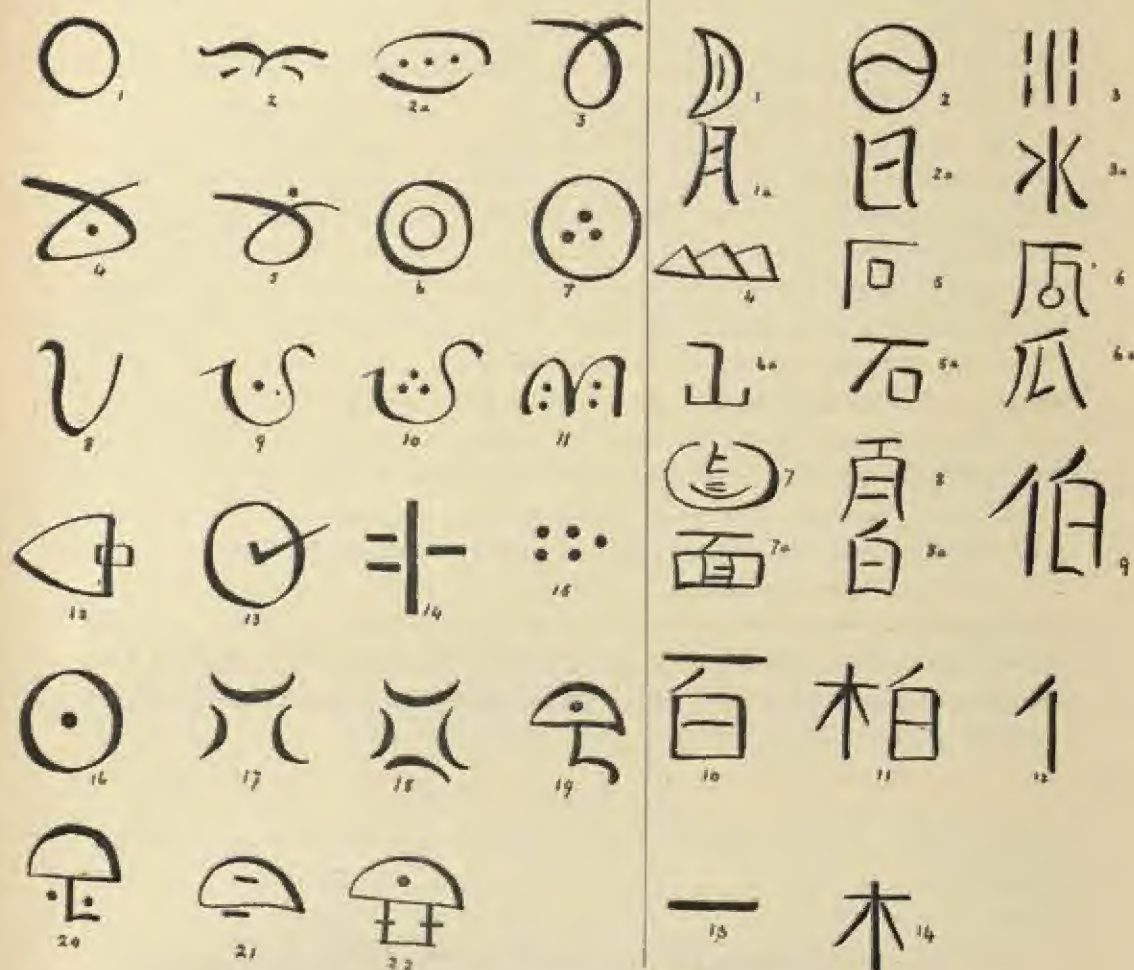 1 2 2a 3
4 5 6 7
8 9 10 11
12 13 14 15
16 17 18 19
20 21 22
1 2 3
月 1a 日 2a 水 3a
4 5 6
山 4a 石 5a 瓜 6a
7 8 伯 9
面 7a 白 8a
百 10 柏 11 亻 12
一 13 木 14